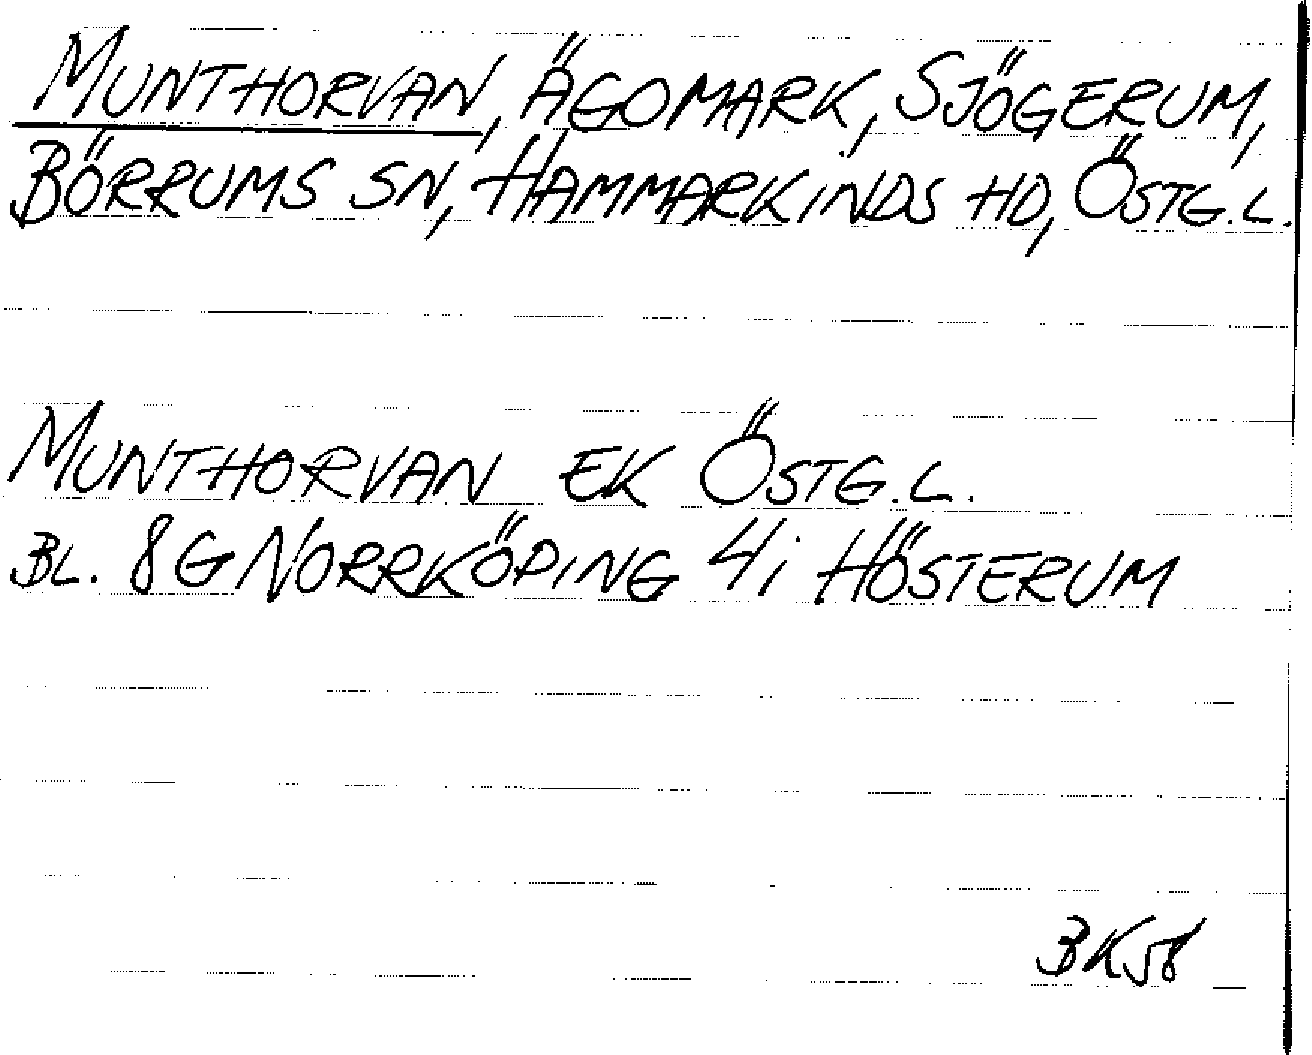 MUNTHORVAN, ÄGOMARK, SJÖGERUM,
BÖRRUMS SN, HAMMARKINDS HD, ÖSTG.L.
MUNTHORVAN EK ÖSTG.L.
BL. 8G NORRKÖPING 4i HÖSTERUM
BK58